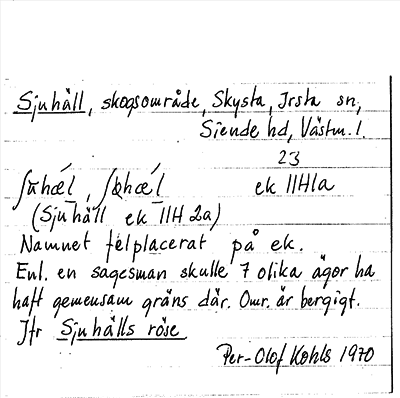 Sjuhäll, skogsområde, Skysta, Irsta sn,
Siende hd, Västm. l.
23
ʃʉ̄hæ´l̄, ʃʉhæ´l̄ ek 11H1a
(Sjuhäll ek 11H 2a)
Namnet felplacerat på ek.
Enl. en sagesman skulle 7 olika ägor ha
haft gemensam gräns där. Omr. är bergigt.
Jfr Sjuhälls röse
Per-Olof Kohls 1970